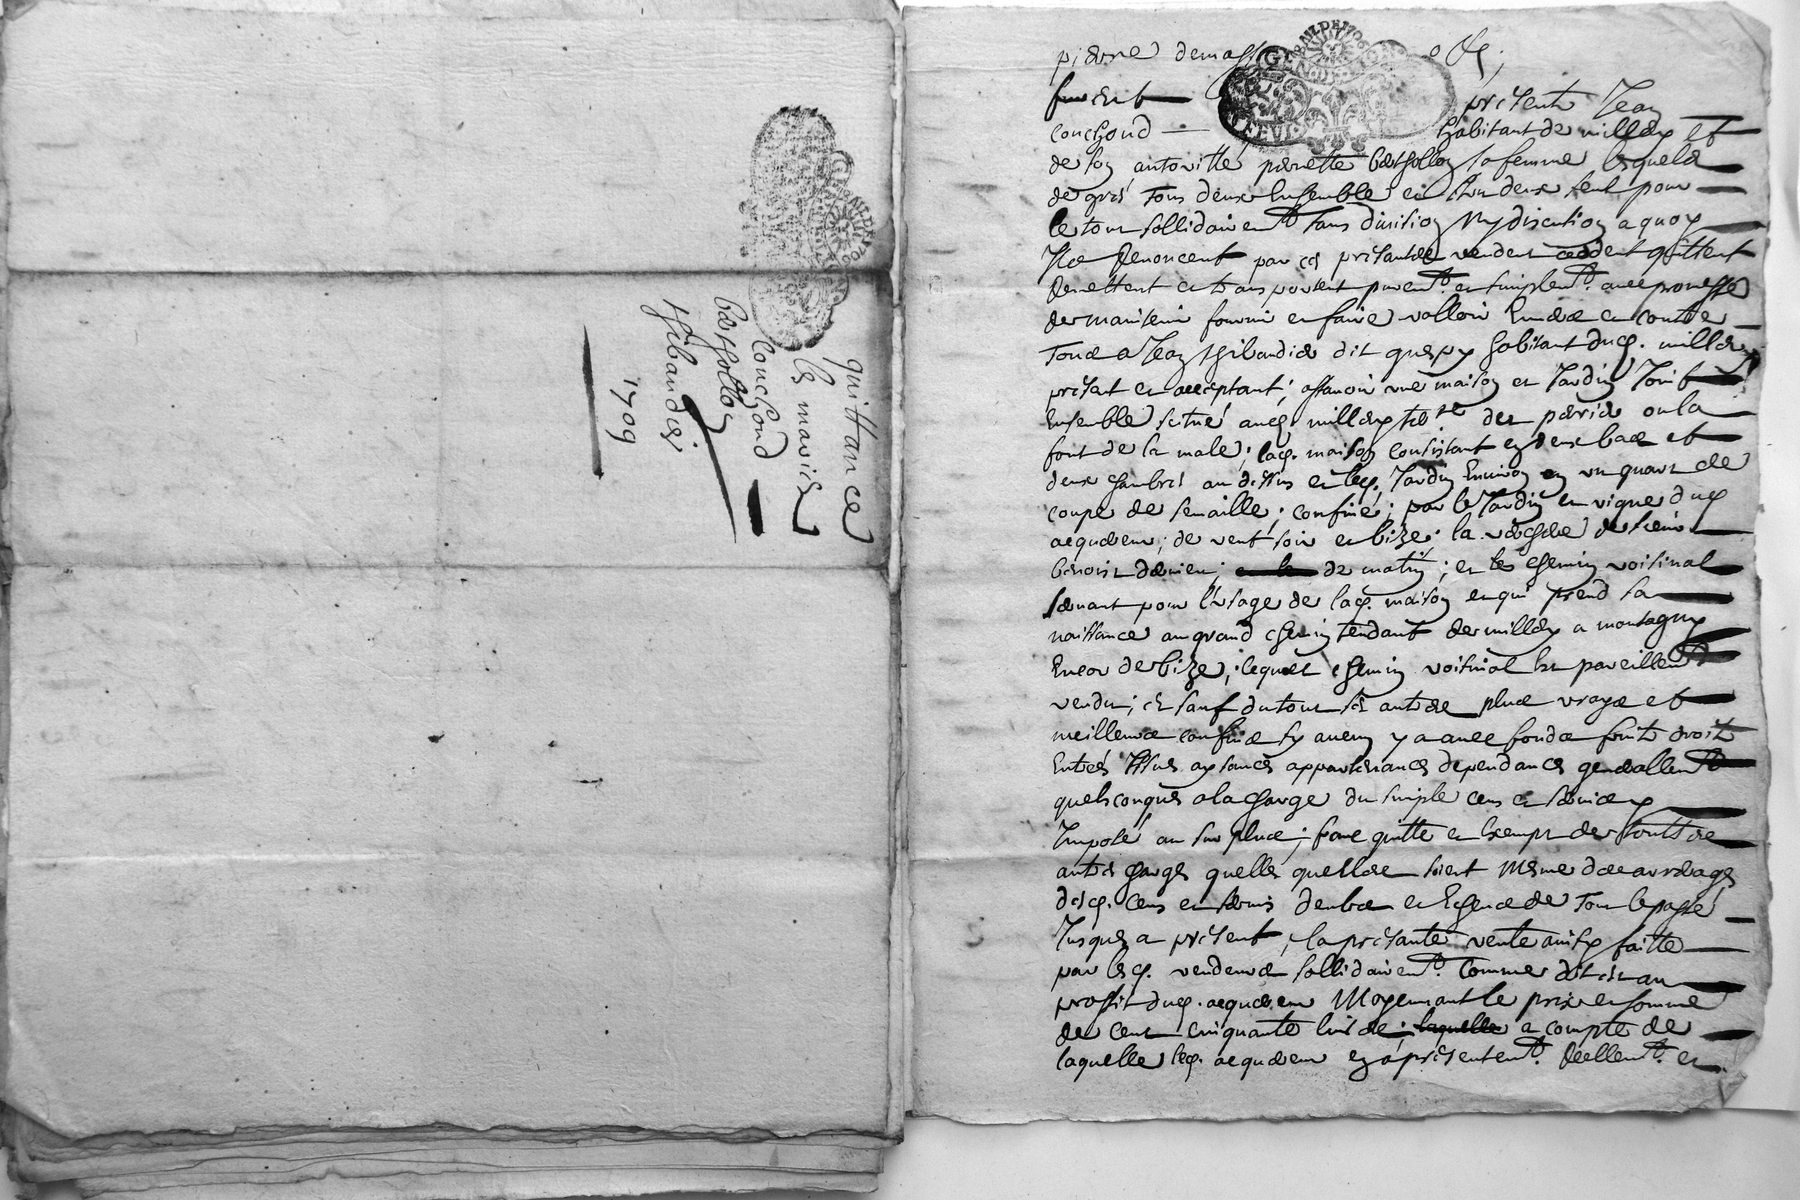 quittance
les mariés
Couchoud
berthollon
thibaudier
1709
pierre
furent présents Jean
couchoud habitant de millery et
de son autoritté pierrette berthollon sa femme lesquels
de gré tous deux Ensemble et lun deux seul pour
le tout sollidairemt sans division ny discution a quoy
Ils Renoncent par ces présantes vendent ceddent quittent
Remettent et transportent puremt. et simplemt. avec promesse
de maintenir fournir et faire valloir Envers et contre
Tous a Jean thibaudier dit habitant dud. millery
présent et acceptant; assavoir une maison et Jardin Joint
Ensemble scitué aud. millery de ou la
font de la male; lad. maison consistant en deux bas et
deux chambres au dessus et led. Jardin Environ en un quart de
coupe de semaille; confiné; par le Jardin et vigne dud.
acquereur; de vent soir et bize; la de
benoist de matin; et le chemin voisinal
servant pour l'usage de lad. maison et qui prend sa
naissance au grand chemin tendant de millery a montagny
Encor de bize; lequel chemin voisinal Est pareillemt
vendu; et sauf du tout ses autres plus vrays et
meilleurs confins sy aucun y a avec fonds fruits droits
Entrés Issues aysances appartenances dependances generallemt
quelsconques a la charge du simple cens et servis y
Imposé au surplus; franc quitte et Exempt de touttes
autres charges quelles quelles soient Mesme des arrérages
desd. cens et servis deubs et Echeus de Tout le passé
Jusques a présent, la présante vente ainsy faitte
par lesd. vendeurs sollidairemt. Comme dit est au
proffit dud. acquereur Moyennant le prix et somme
de cent cinquante livres; laquelle a compte de
laquelle led. acquereur en a présentemt. Reellemt. et